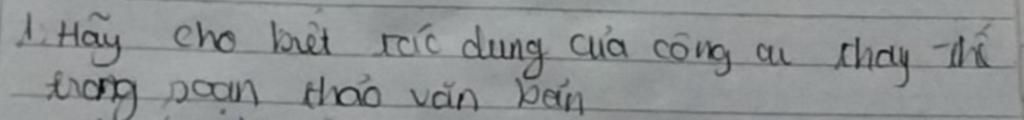 1. Hãy cho biết tác dụng của công cụ thay thế
trong soạn thảo văn bản